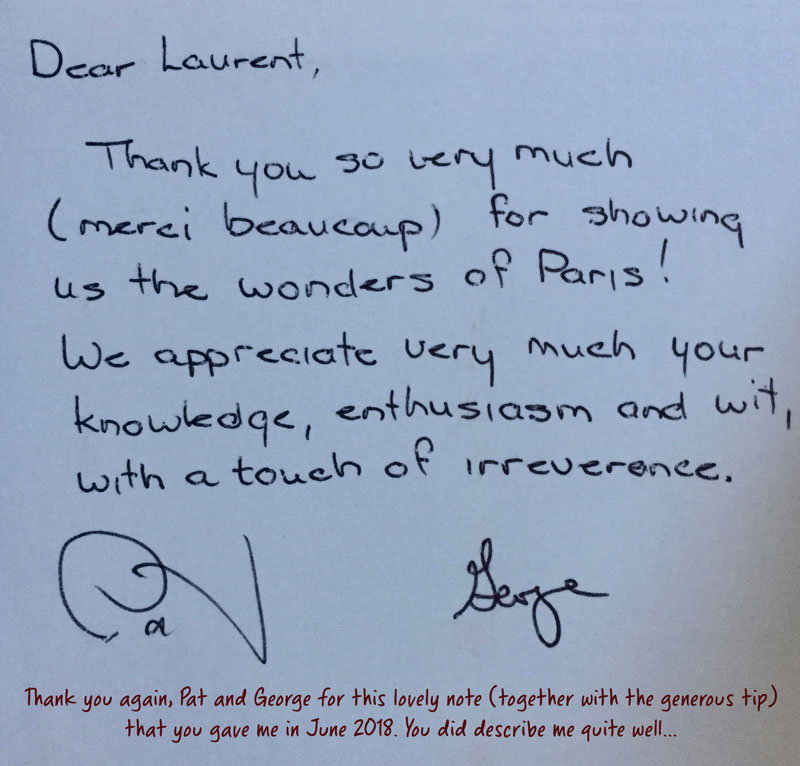 Dear Laurent,
Thank you so very much
(merci beaucoup) for showing
us the wonders of Paris!
We appreciate very much your
knowledge, enthusiasm and wit,
with a touch of irreverence.
George
Thank you again, Pat and George for this lovely note (together with the generous tip)
that you gave me in June 2018. You did describe me quite well...